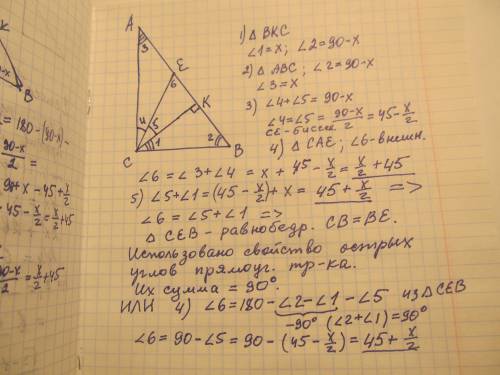 A
3
E
6
K
4
5
1
2
C
B
1) △ BKC
∠1=x; ∠2=90-x
2) △ ABC; ∠2=90-x
∠3=x
3) ∠4+∠5=90-x
∠4=∠5= (90-x)/2 = 45-x/2
CE-биссек.
4) △ CAE; ∠6-внешн.
∠6=∠3+∠4 = x+45-x/2 = x/2+45
5) ∠5+∠1=(45-x/2)+x = 45+x/2 =>
∠6=∠5+∠1 =>
△ CEB - равнобедр. CB=BE.
Использовано свойство острых
углов прямоуг. тр-ка.
Их сумма = 90°.
ИЛИ 4) ∠6=180-∠2-∠1-∠5 из △CEB
-90° (∠2+∠1)=90°
∠6=90-∠5=90-(45-x/2)=45+x/2
K
-x
B
=180-(90-x)-
90-x/2 =
90+x-45+x/2
45-x/2=x/2+45
90-x/2 = x/2+45